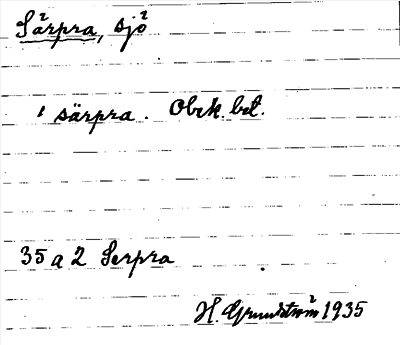 Särpra, sjö
' särpra. Obek. bet.
35 a 2 Serpra
H. Grundström 1935